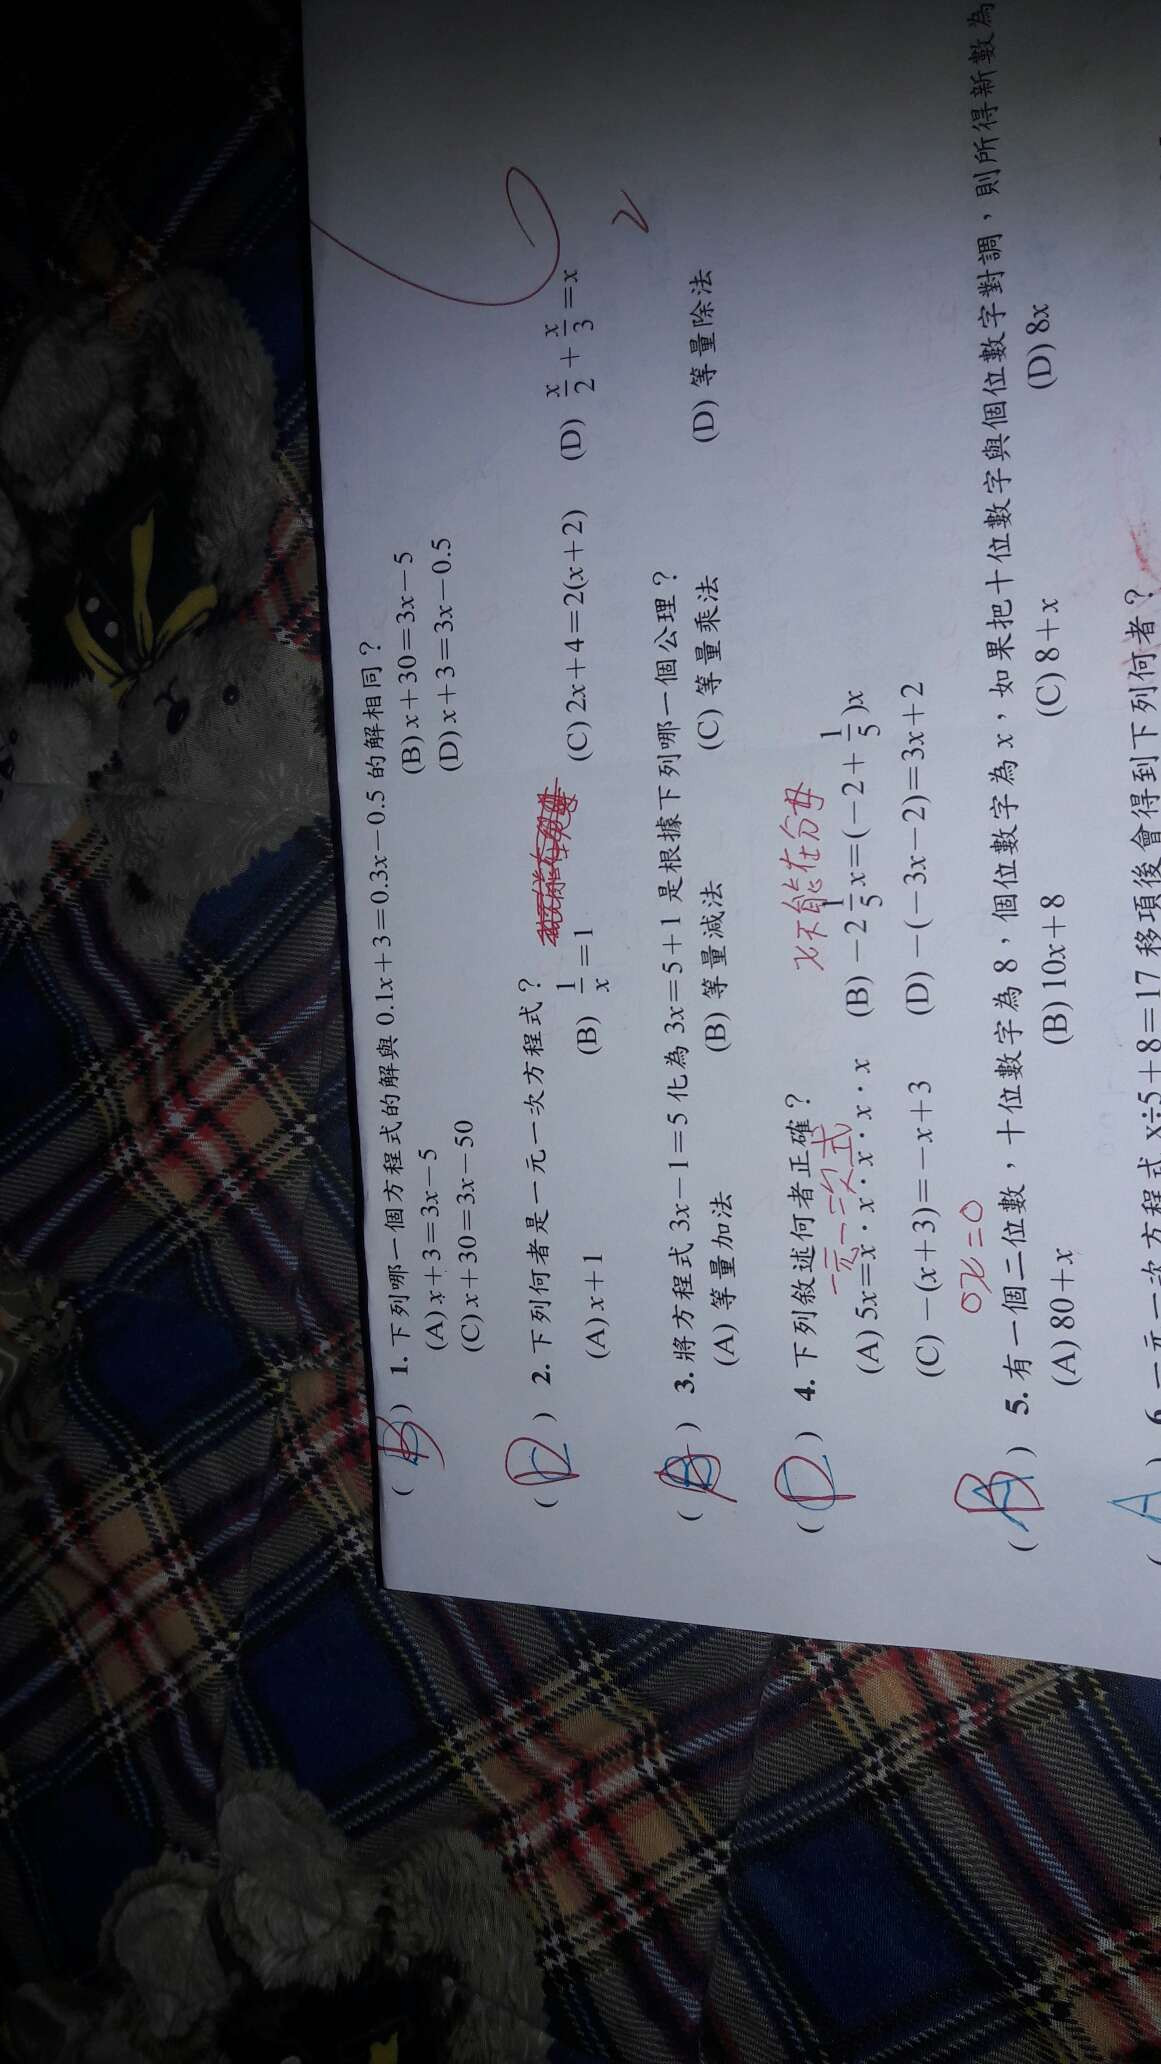 (B) 1. 下列哪一個方程式的解與 0.1x+3=0.3x-0.5 的解相同？
(A) x+3=3x-5 (B) x+30=3x-5
(C) x+30=3x-50 (D) x+3=3x-0.5
(D) 2. 下列何者是一元一次方程式？
(A) x+1 (B) 1/x=1 (C) 2x+4=2(x+2) (D) x/2+x/3=x
(A) 3. 將方程式 3x-1=5 化為 3x=5+1 是根據下列哪一個公理？
(A) 等量加法 (B) 等量減法 (C) 等量乘法 (D) 等量除法
x不能在分母
(D) 4. 下列敘述何者正確？
一元一次式
(A) 5x=x·x·x·x·x (B) -2 1/5 x=(-2+1/5)x
(C) -(x+3)=-x+3 (D) -(-3x-2)=3x+2
0x=0
(B) 5. 有一個二位數，十位數字為 8，個位數字為 x，如果把十位數字與個位數字對調，則所得新數為
(A) 80+x (B) 10x+8 (C) 8+x (D) 8x
(A) 6. 一元一次方程式 x÷5+8=17 移項後會得到下列何者？